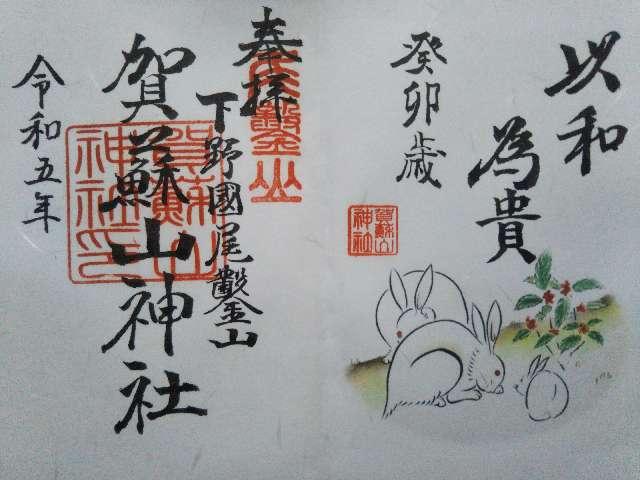 以和
為貴
癸卯歳
賀蘇山
神社
奉拝
下野國尾鑿山
尾鑿山
賀蘇山神社
賀蘇山
神社印
令和五年